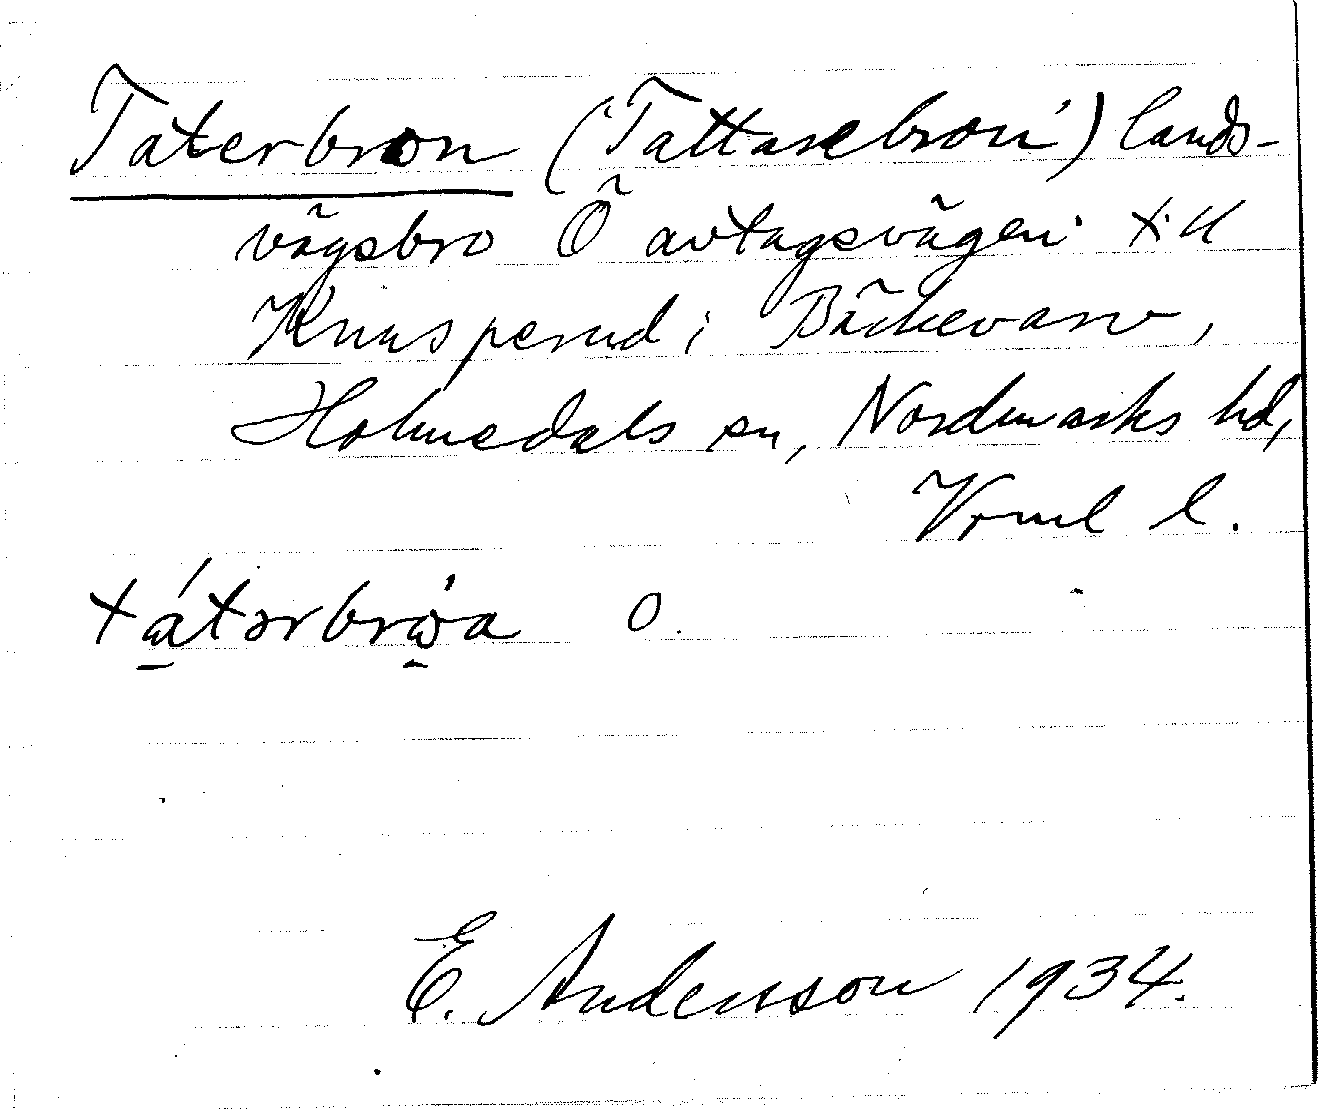 Taterbron ('Tattarebron') lands-
vägsbro Ö avtagsvägen till
Knusperud i Bäckevarv,
Holmedals sn, Nordmarks hd,
Vrml l.
tátərbrωa O.
E. Andersson 1934.